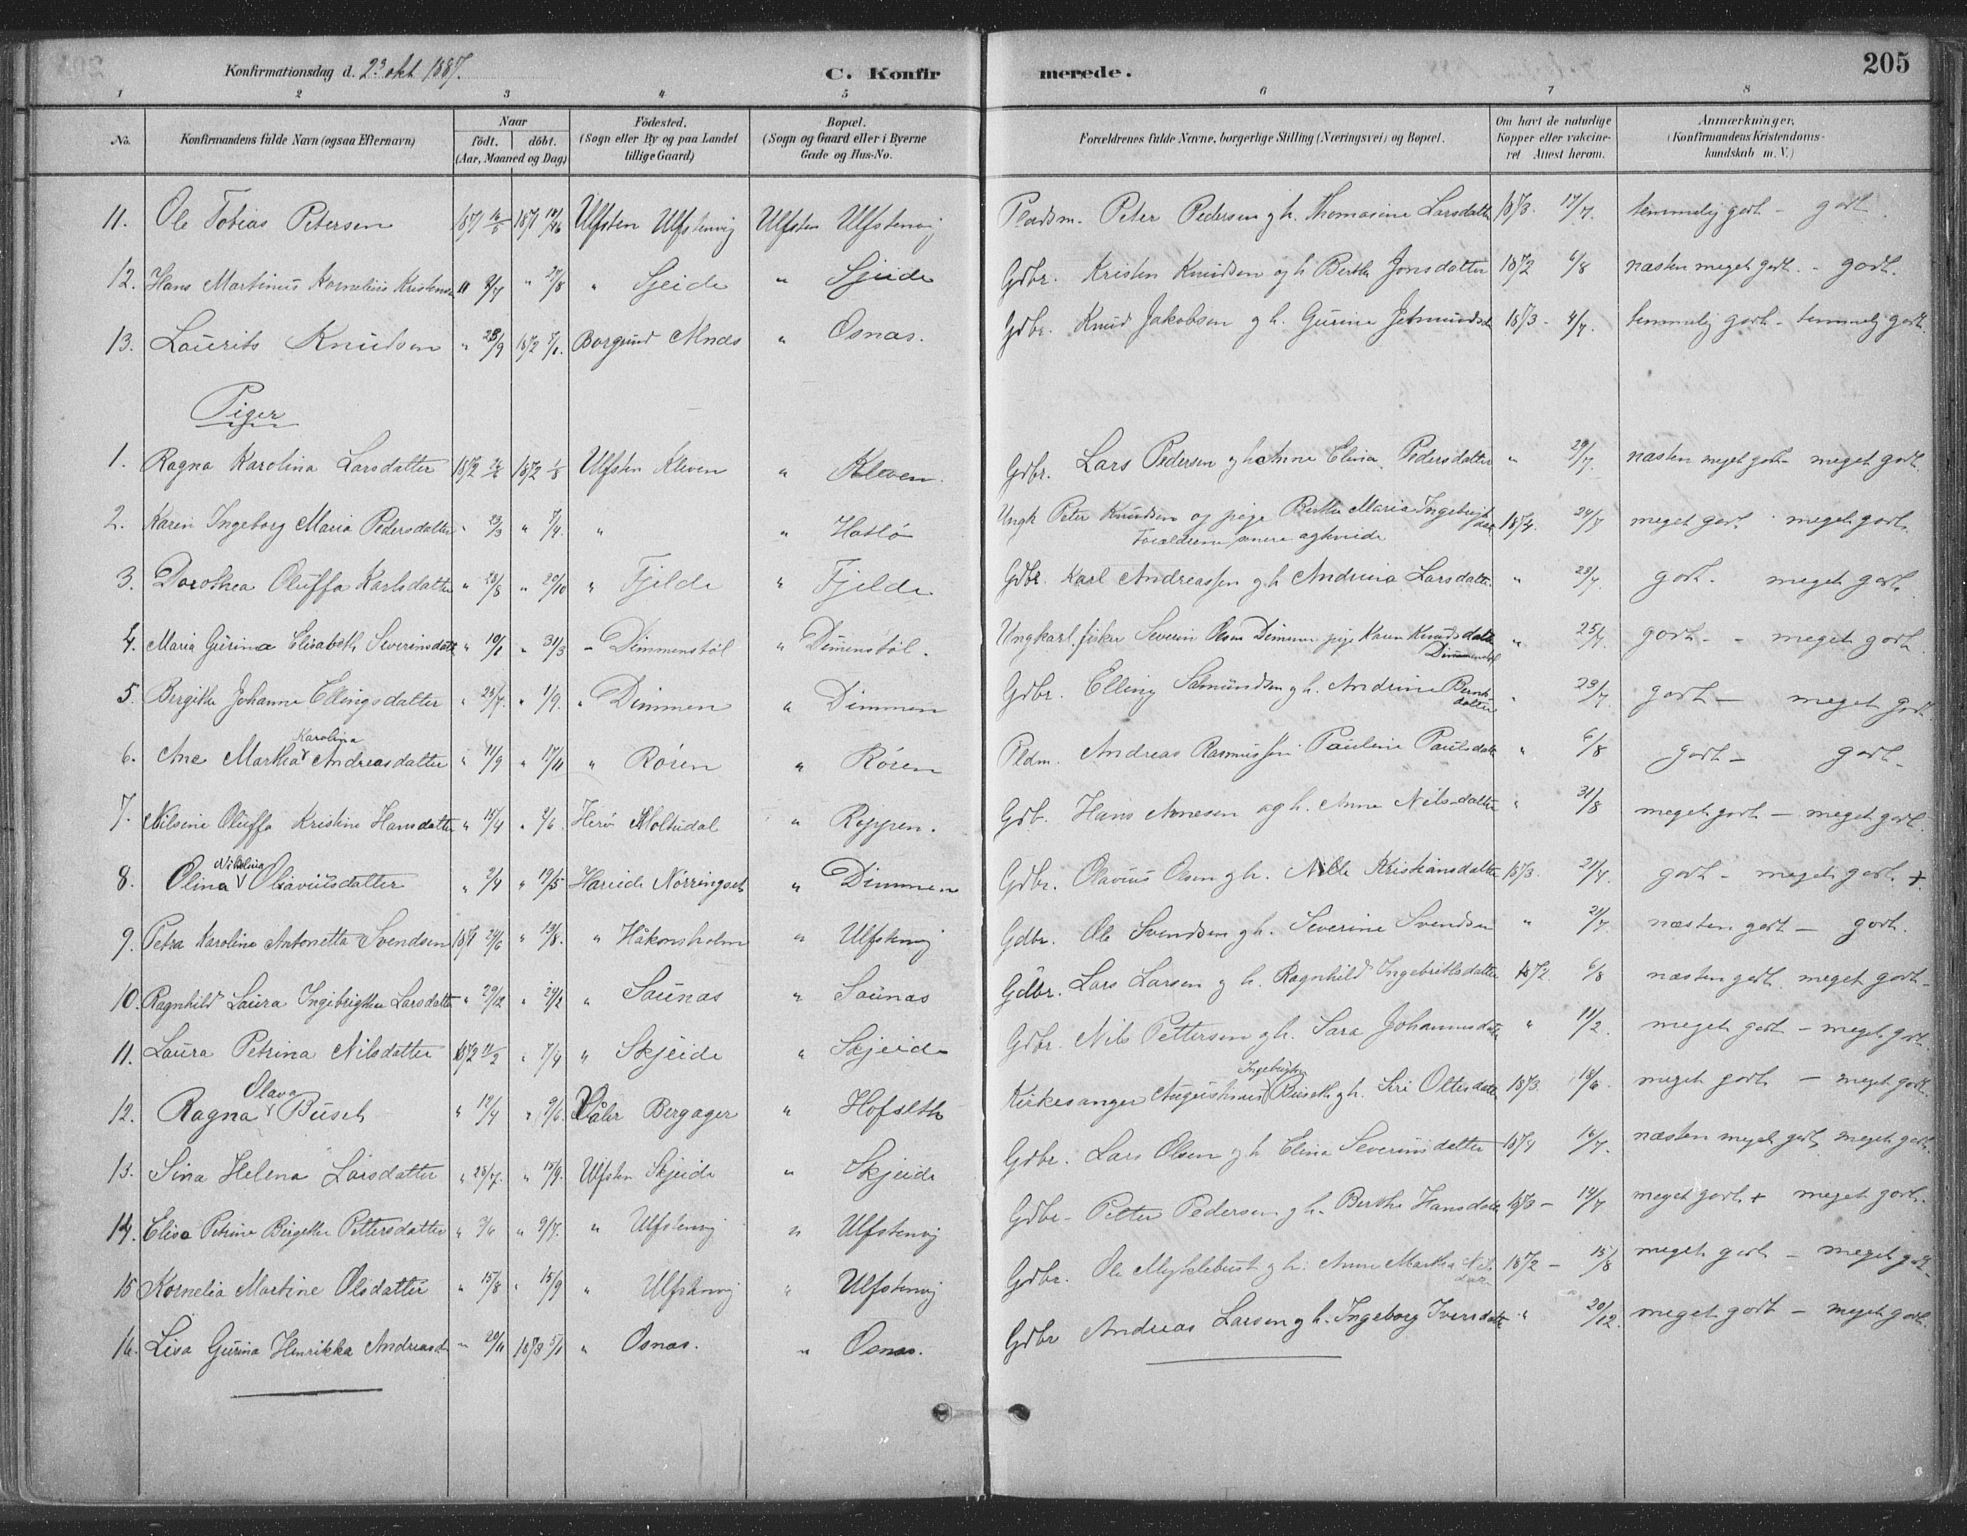 Konfirmationsdag d. 23 okt 1887. C. Konfirmerede. 205
1 2 3 4 5 6 7 8
No. Konfirmandens fulde Navn (ogsaa Efternavn) Naar født. døbt. (Aar, Maaned og Dag) Fødested. (Sogn eller By og paa Landet tillige Gaard) Bopæl. (Sogn og Gaard eller i Byerne Gade og Hus-No. Forældrenes fulde Navne, borgerlige Stilling (Næringsvei) og Bopæl. Om havt de naturlige Kopper eller vakcineret. Attest herom. Anmærkninger, (Konfirmandens Kristendomskundskab m. V.)
11. Ole Tobias Petersen 1871 Ulfsten Ulfstenvig Ulfsten Ulfstenvig Pladsm. Peter Pedersen g h. Thomasine Larsdatter 1873. 17/7. temmelig godt - godt.
12. Hans Martinus Kornelius " 27/8 " Sjeide " Sjeide Gdbr. Kristen Knudsen og h Berthe Jonsdatter 1872 6/8 næsten meget godt. - godt.
13. Laurits Knudsen " 28/9 1872 7/1. Borgund " Osnas. Gdbr. Knud Jakobsen g h. Gurine 1873 - 4/7. temmelig godt - temmelig godt.
Piger
1. Ragna Karolina Larsdatter 1872 1872 Ulfsten Kleven " Kleven. Gdbr. Lars Pedersen g h Anne Elina Pedersdatter " 29/7. næsten meget godt - meget godt.
2. Karen Ingeborg Maria Pedersdatter " 23/3 " 7/4. " " Hatlø Ungk Peter Knudsen og pige Berthe Maria 1874. 24/7 meget godt meget godt.
Forældrene senere
3. Dorothea Oluffa Karlsdatter " 28/8 " 20/10 " Fjelde " Fjelde Gdbr. Karl Andreassen g h Andrina Larsdatter. " 23/7 godt - meget godt.
4. Maria Gurina Elisabeth Severinsdatt " 10/1 " 31/3 " Dimmenstøl " Dimenstøl. Ungkarl. fisker Severin Olsen Dimmen pige Karen Knudsdatter Dimmenstøl " 25/7. godt - - meget godt.
5. Bergithe Johanne Ellingsdatter " 25/7. " 1/9. " Dimmen " Dimmen Gdbr. Elling g h. Andrine " 23/7. godt - meget godt
6. Ane Martha Karolina Andreasdatter " 11/9 " 17/11 " Røren " Røren Pldm. Andreas Rasmussen Pauline Paulsdatt " 6/8 godt - godt.
7. Nilsine Oluffa Kristine Hansdatter " 15/4 " 2/6. Herø Moltudal " Roppen. Gdb. Hans Arnesen og h. Anne Nilsdatter " 31/8 meget godt - meget godt.
8. Olina Nikolina Olaviusdatter " 2/4 " 19/5 Hareide Nørringset " Dimmen Gdbr. Olavius Olsen g h. Kristiansdatter 1873. 21/7. godt - meget godt. +
9. Petra Karolina Antonetta Svendsen 1871 24/6 " 13/8. " Håkonsholm " Ulfstenvig Gdbr. Ole Svendsen g h. Severine Svendsen " 21/7 næsten godt - godt.
10. Ragnhild Laura Larsdatter " 29/12 " 24/2 " Saunas " Saunas Gdbr. Lars Larsen g h. Ragnhild Ingebrittsdatter 1872. 6/8 næsten godt. meget godt -
11. Laura Petrina Nilsdatter 1872 11/2 " 7/4 " Skjeide " Skjeide Gdbr. Nils Pettersen g h. Sara Johannesdatt " 11/2. meget godt - meget godt.
12. Ragna Olava Buset " 12/4 " 9/6. Våler Bergager " Hofseth Kirkesanger Augustinus Buseth g h. Siri Oltesdatter 1873. 18/6 meget godt - meget godt.
13. Sina Helena Larsdatter " 23/7. " 15/9. Ulfsten Skjeide " Skjeide Gdbr. Lars Olsen g h Elina Severinsdatter 1874 16/7. næsten meget godt, meget godt.
14. Elisa Petrine Bergethe Pettersdatter " 3/6 " 9/7. " Ulfstenvig " Ulfstenvig Gdbr. Petter Pedersen g h. Berthe Hansdatt 1873 - 14/7 meget godt + meget godt.
15 Kornelia Martine Olsdatter " 15/8 " 15/9 " Ulfstenvig " Ulfstenvig Gdbr. Ole Myklebust g h. Anne Martha 1872 - 15/8 meget godt - meget godt.
16. Lisa Gurina Henrikka Andreasd " 20/11 1873 5/1 " Osnas. " Osnas. Gdbr Andreas Larsen g h. Ingeborg Iversdatt " 20/12. meget godt - meget godt.